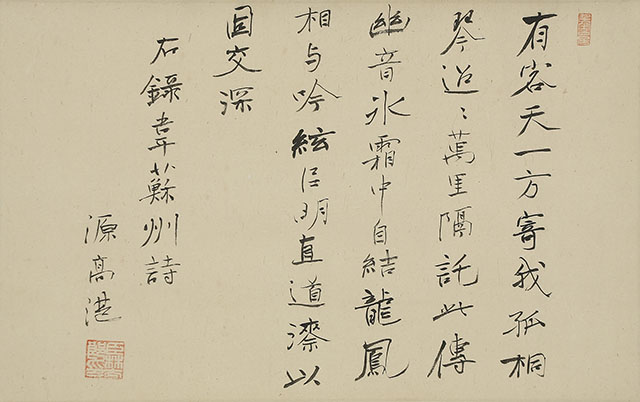 有客天一方寄我孤桐
琴迢〻萬里隔託此傳
幽音氷霜中自結龍鳳
相与吟絃㠯明直道漆以
固交深
右錄韋蘇州詩
源高湛